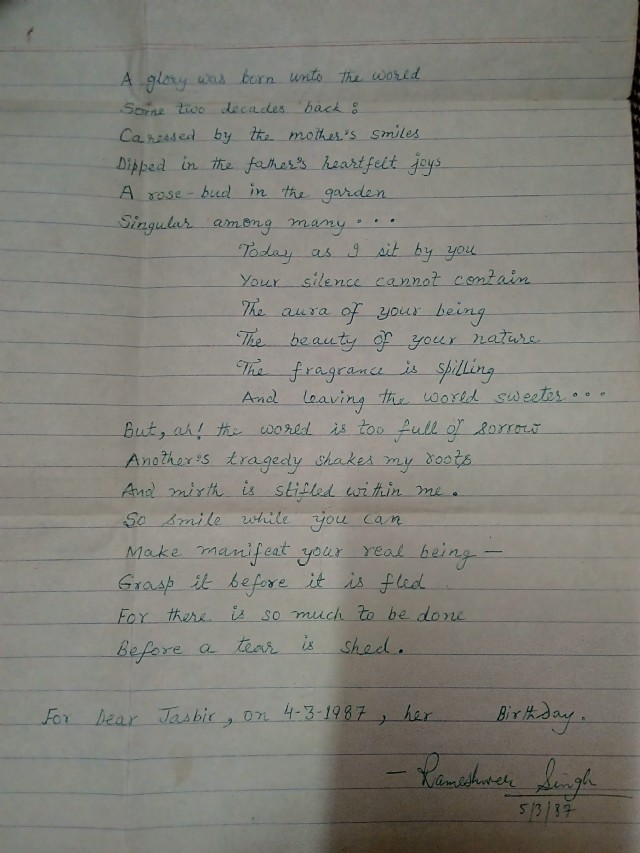 A glory was born unto the world
Some two decades back :
Caressed by the mother's smiles
Dipped in the father's heartfelt joys
A rose-bud in the garden
Singular among many...
Today as I sit by you
Your silence cannot contain
The aura of your being
The beauty of your nature
The fragrance is spilling
And leaving the world sweeter...
But, ah! the world is too full of sorrow
Another's tragedy shakes my roots
And mirth is stifled within me.
So smile while you can
Make manifest your real being —
Grasp it before it is fled
For there is so much to be done
Before a tear is shed.
For Dear Jasbir, on 4-3-1987, her Birthday.
— Rameshwer Singh
5/3/87